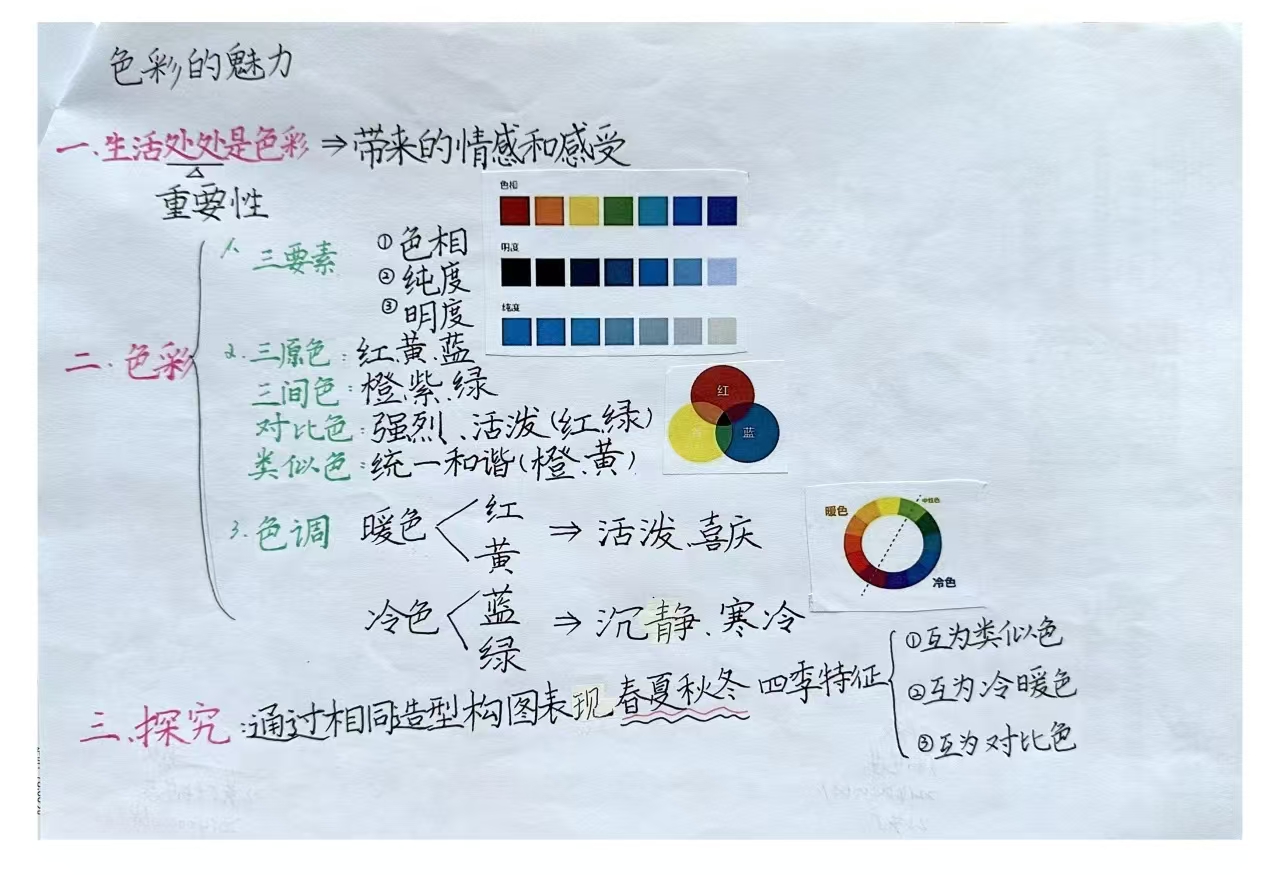 色彩的魅力
一.生活处处是色彩⇒带来的情感和感受
重要性
二.色彩
1.三要素
①色相
②纯度
③明度
色相
明度
纯度
2.三原色:红、黄、蓝
三间色:橙、紫、绿
对比色:强烈、活泼(红、绿)
类似色:统一和谐(橙、黄)
红
黄
蓝
3.色调
暖色
红
黄
⇒活泼、喜庆
冷色
蓝
绿
⇒沉静、寒冷
暖色
中性色
冷色
三.探究:通过相同造型构图表现春夏秋冬四季特征
①互为类似色
②互为冷暖色
③互为对比色